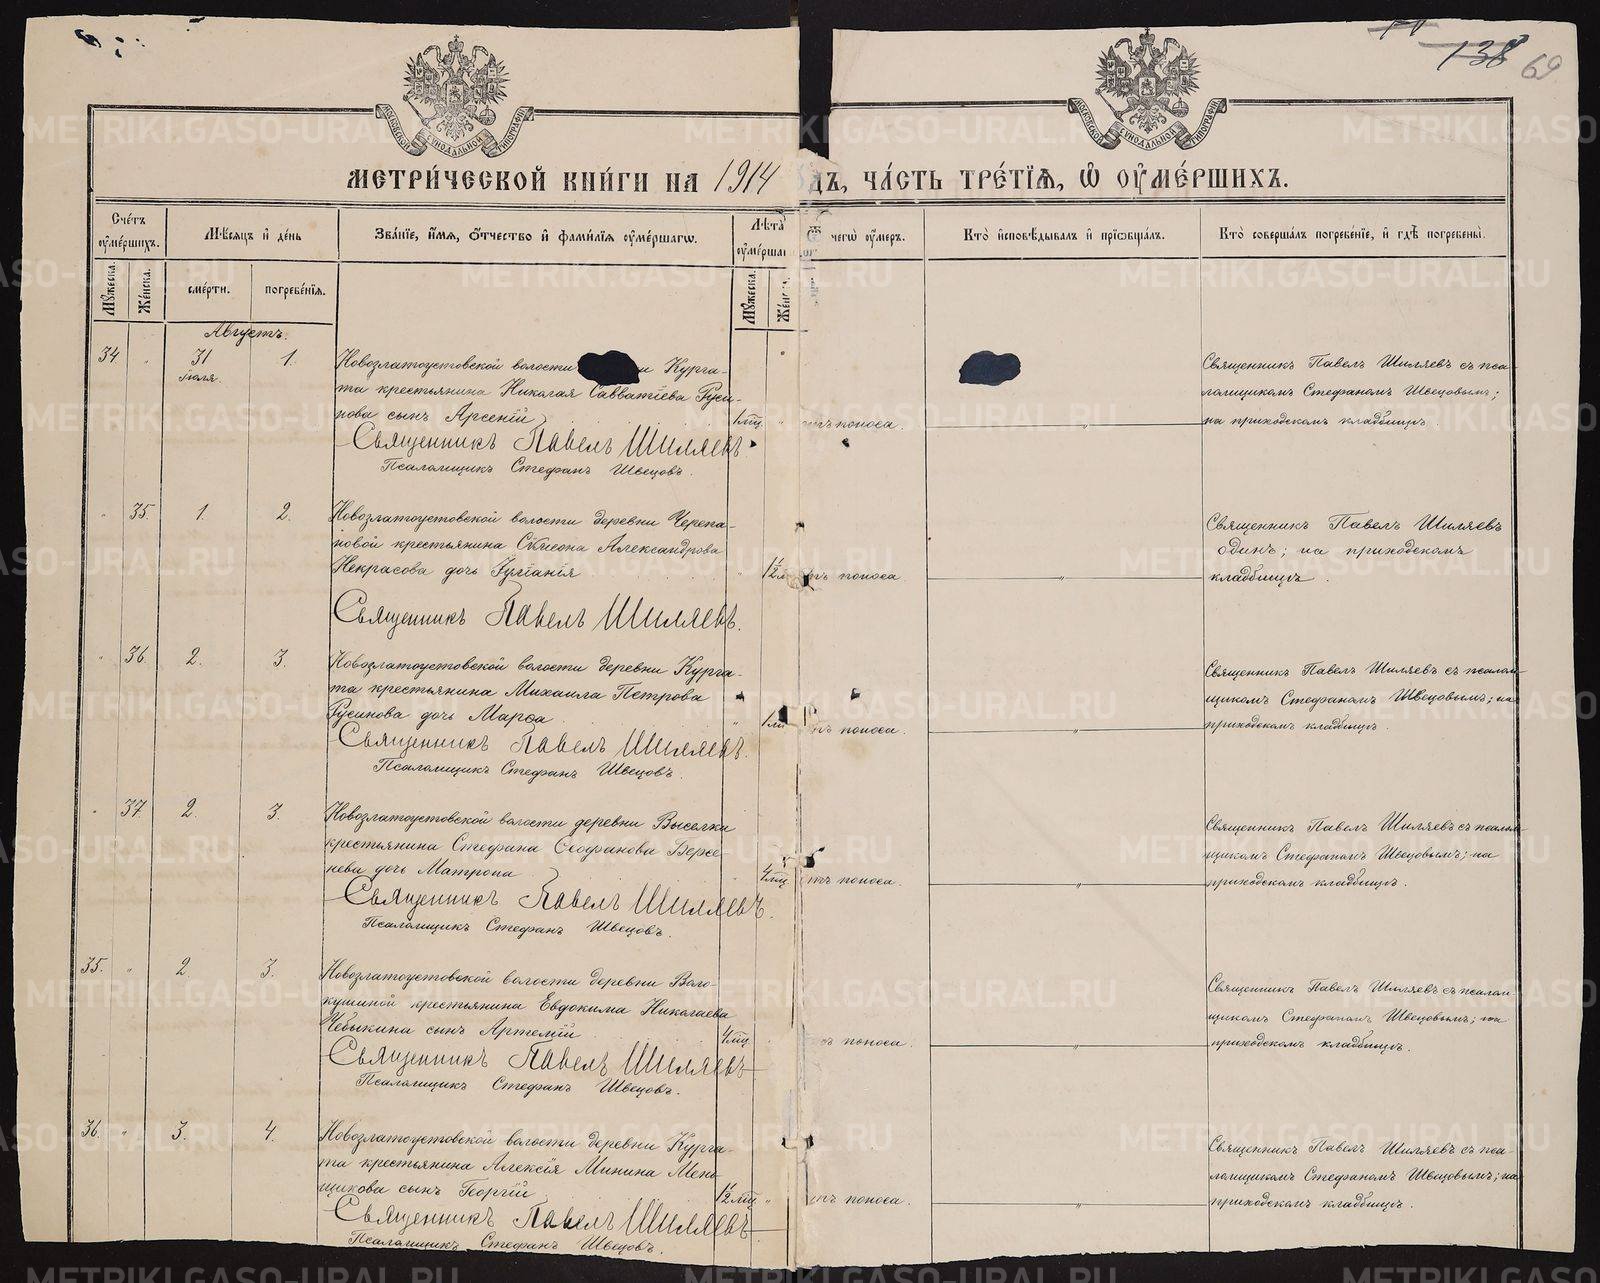 138 69
МОСКОВСКОЙ СѴНОДАЛЬНОЙ ТИПОГРАФІИ
МОСКОВСКОЙ СѴНОДАЛЬНОЙ ТИПОГРАФІИ
МЕТРИ́ЧЕСКОЙ КНИ́ГИ НА 1914 ДЪ, ЧА́СТЬ ТРЕ́ТІѦ, Ѡ ОУМЕ́РШИХЪ.
Сче́тъ оуме́ршихъ.
Мѣ́сяцъ и де́нь
Зва́ніе, и́мя, о́тчество и фами́лія оуме́ршагѡ.
Лѣта̀ оуме́ршаг
Ѿ чегѡ̀ оу́меръ.
Кто̀ исповѣ́дывалъ и пріѡбща́лъ.
Кто̀ соверша́лъ погребе́ніе, и гдѣ̀ погребены̀.
Му́жеска. Же́нска.
сме́рти. погребе́нія.
Му́жеска. Же́нс
Августъ.
34 „ 31 іюля. 1.
Новозлатоустовской волости и Курга-
та крестьянина Николая Савватіева Руси-
нова сынъ Арсеній 1 мц. „ отъ поноса.
Священникъ Павелъ Шиляевъ.
Псаломщикъ Стефанъ Швецовъ.
Священникъ Павелъ Шиляевъ съ пса-
ломщикомъ Стефаномъ Швецовымъ;
на приходскомъ кладбищѣ.
„ 35. 1. 2.
Новозлатоустовской волости деревни Черепа-
новой крестьянина Сѵмеона Александрова
Некрасова дочь Іуліанія „ 1/2 отъ поноса
Священникъ Павелъ Шиляевъ.
Священникъ Павелъ Шиляевъ
одинъ; на приходскомъ
кладбищѣ.
„ 36. 2. 3.
Новозлатоустовской волости деревни Курга-
та крестьянина Михаила Петрова
Русинова дочь Марѳа „ 1 мц. отъ поноса.
Священникъ Павелъ Шиляевъ.
Псаломщикъ Стефанъ Швецовъ.
Священникъ Павелъ Шиляевъ съ псалом-
щикомъ Стефаномъ Швецовымъ; на
приходскомъ кладбищѣ.
„ 37. 2. 3.
Новозлатоустовской волости деревни Выселки
крестьянина Стефана Ѳеофанова Берсе-
нева дочь Матрона 4 мц отъ поноса.
Священникъ Павелъ Шиляевъ.
Псаломщикъ Стефанъ Швецовъ.
Священникъ Павелъ Шиляевъ съ псалом-
щикомъ Стефаномъ Швецовымъ; на
приходскомъ кладбищѣ.
35. „ 2. 3.
Новозлатоустовской волости деревни Воло-
кушиной крестьянина Евдокима Николаева
Чебыкина сынъ Артемій 4 мц поноса.
Священникъ Павелъ Шиляевъ
Псаломщикъ Стефанъ Швецовъ.
Священникъ Павелъ Шиляевъ съ псалом-
щикомъ Стефаномъ Швецовымъ; на
приходскомъ кладбищѣ.
36. „ 3. 4.
Новозлатоустовской волости деревни Курга-
та крестьянина Алексія Минина Мень-
щикова сынъ Георгій 1/2 мц „ отъ поноса.
Священникъ Павелъ Шиляевъ
Псаломщикъ Стефанъ Швецовъ.
Священникъ Павелъ Шиляевъ съ пса-
ломщикомъ Стефаномъ Швецовымъ; на
приходскомъ кладбищѣ.
METRIKI.GASO-URAL.RU